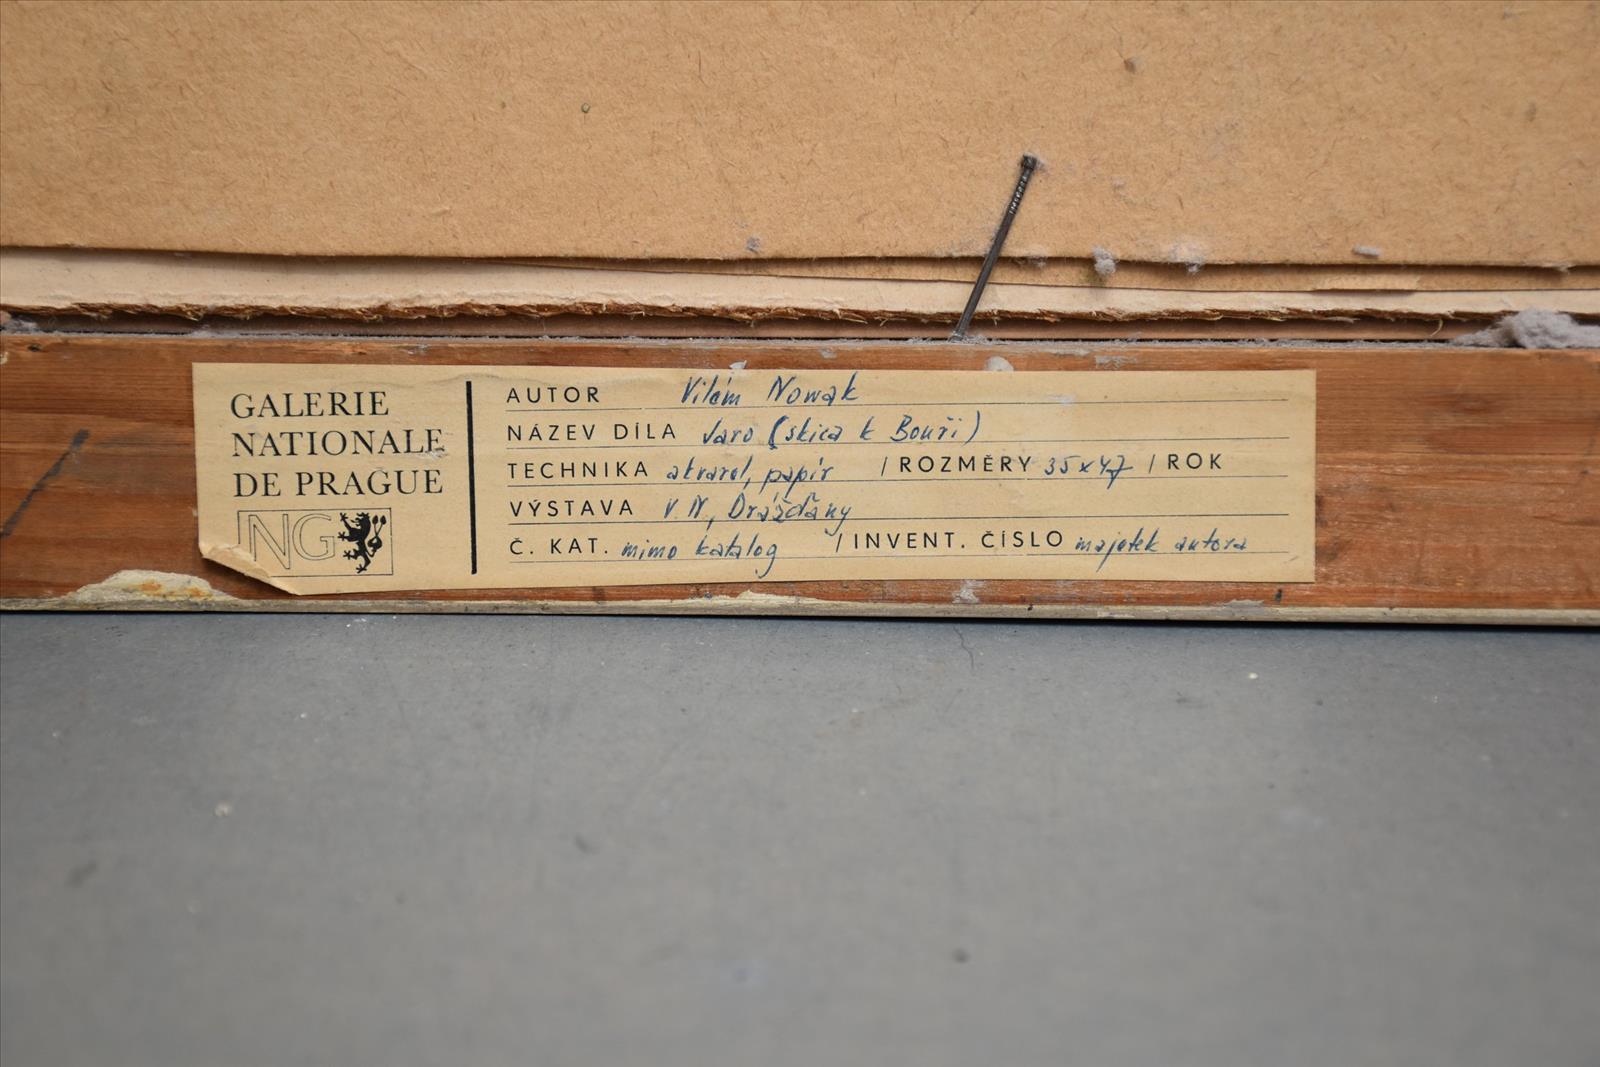 GALERIE
NATIONALE
DE PRAGUE
NG
AUTOR Vilém Nowak
NÁZEV DÍLA Jaro (skica k Bouři)
TECHNIKA akvarel, papír / ROZMĚRY 35x47 / ROK
VÝSTAVA V. N, Drážďany
Č. KAT. mimo katalog / INVENT. ČÍSLO majetek autora